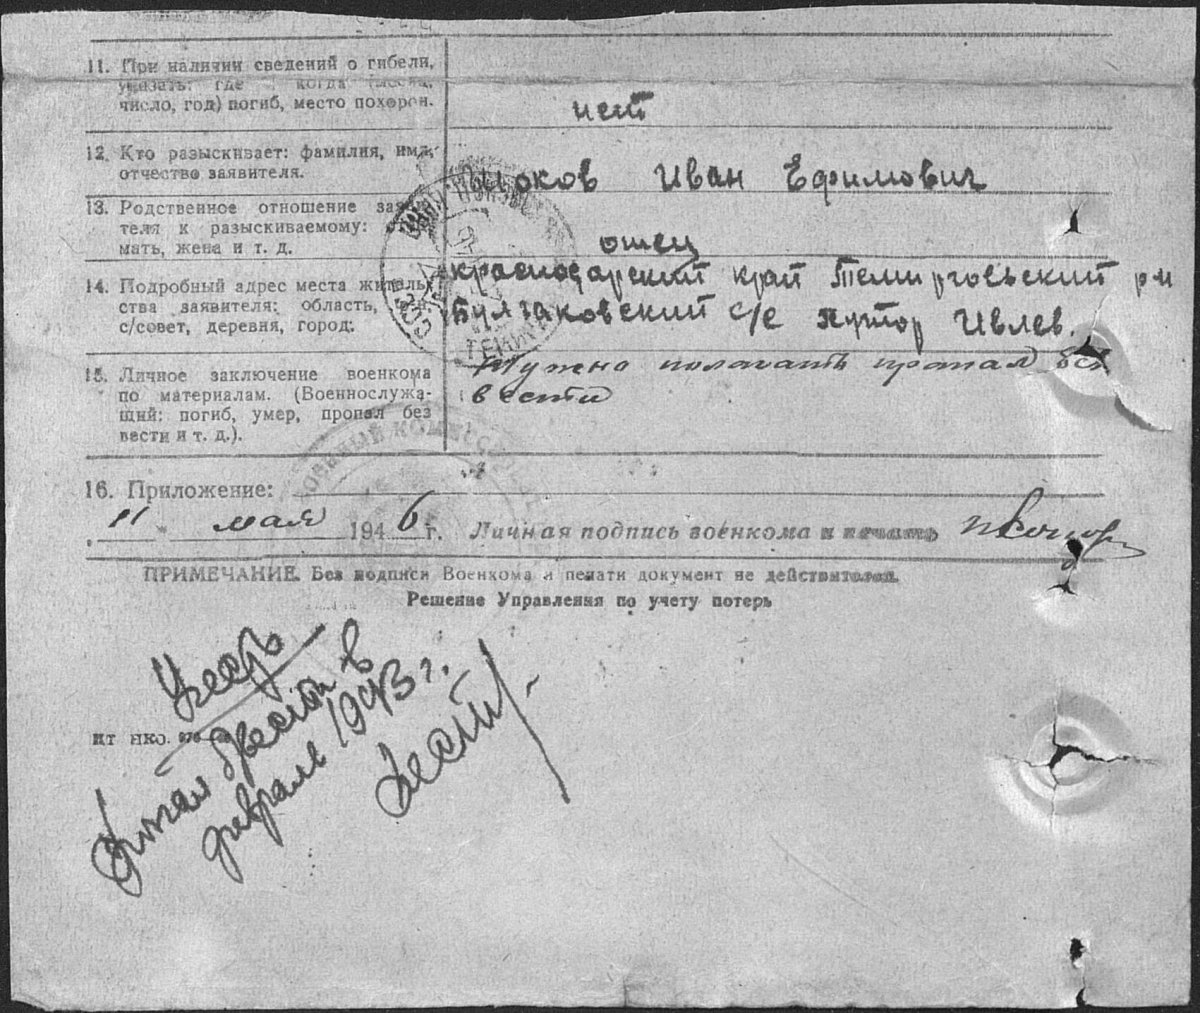 11. При наличии сведений о гибели,
указать: где когда (месяц,
число, год) погиб, место похорон.
нет
12. Кто разыскивает: фамилия, имя,
отчество заявителя.
Иван Ефимович
13. Родственное отношение заяви-
теля к разыскиваемому:
мать, жена и т. д.
отец
14. Подробный адрес места житель-
ства заявителя: область,
с/совет, деревня, город:
Краснодарский край Темиргоевский р-н
Булгаковский с/с хутор Ивлев.
15. Личное заключение военкома
по материалам. (Военнослужа-
щий: погиб, умер, пропал без
вести и т. д.).
Нужно полагать пропал без
вести
16. Приложение:
11 мая 1946 г. Личная подпись военкома и печать
ПРИМЕЧАНИЕ. Без подписи Военкома и печати документ не действителен.
Решение Управления по учету потерь
Пропал б/вести в
феврале 1943 г.
нко.